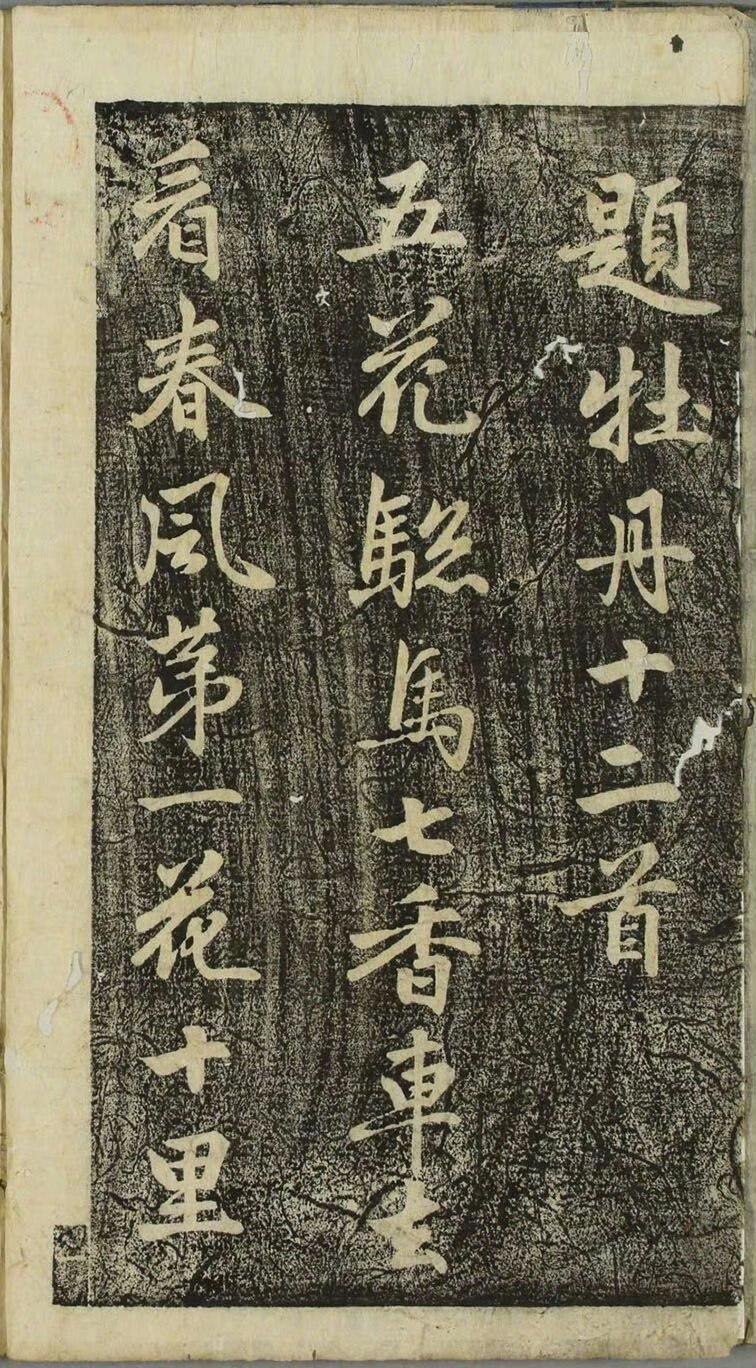 題牡丹十二首
五花驄馬七香車去
看春風第一花十里
一